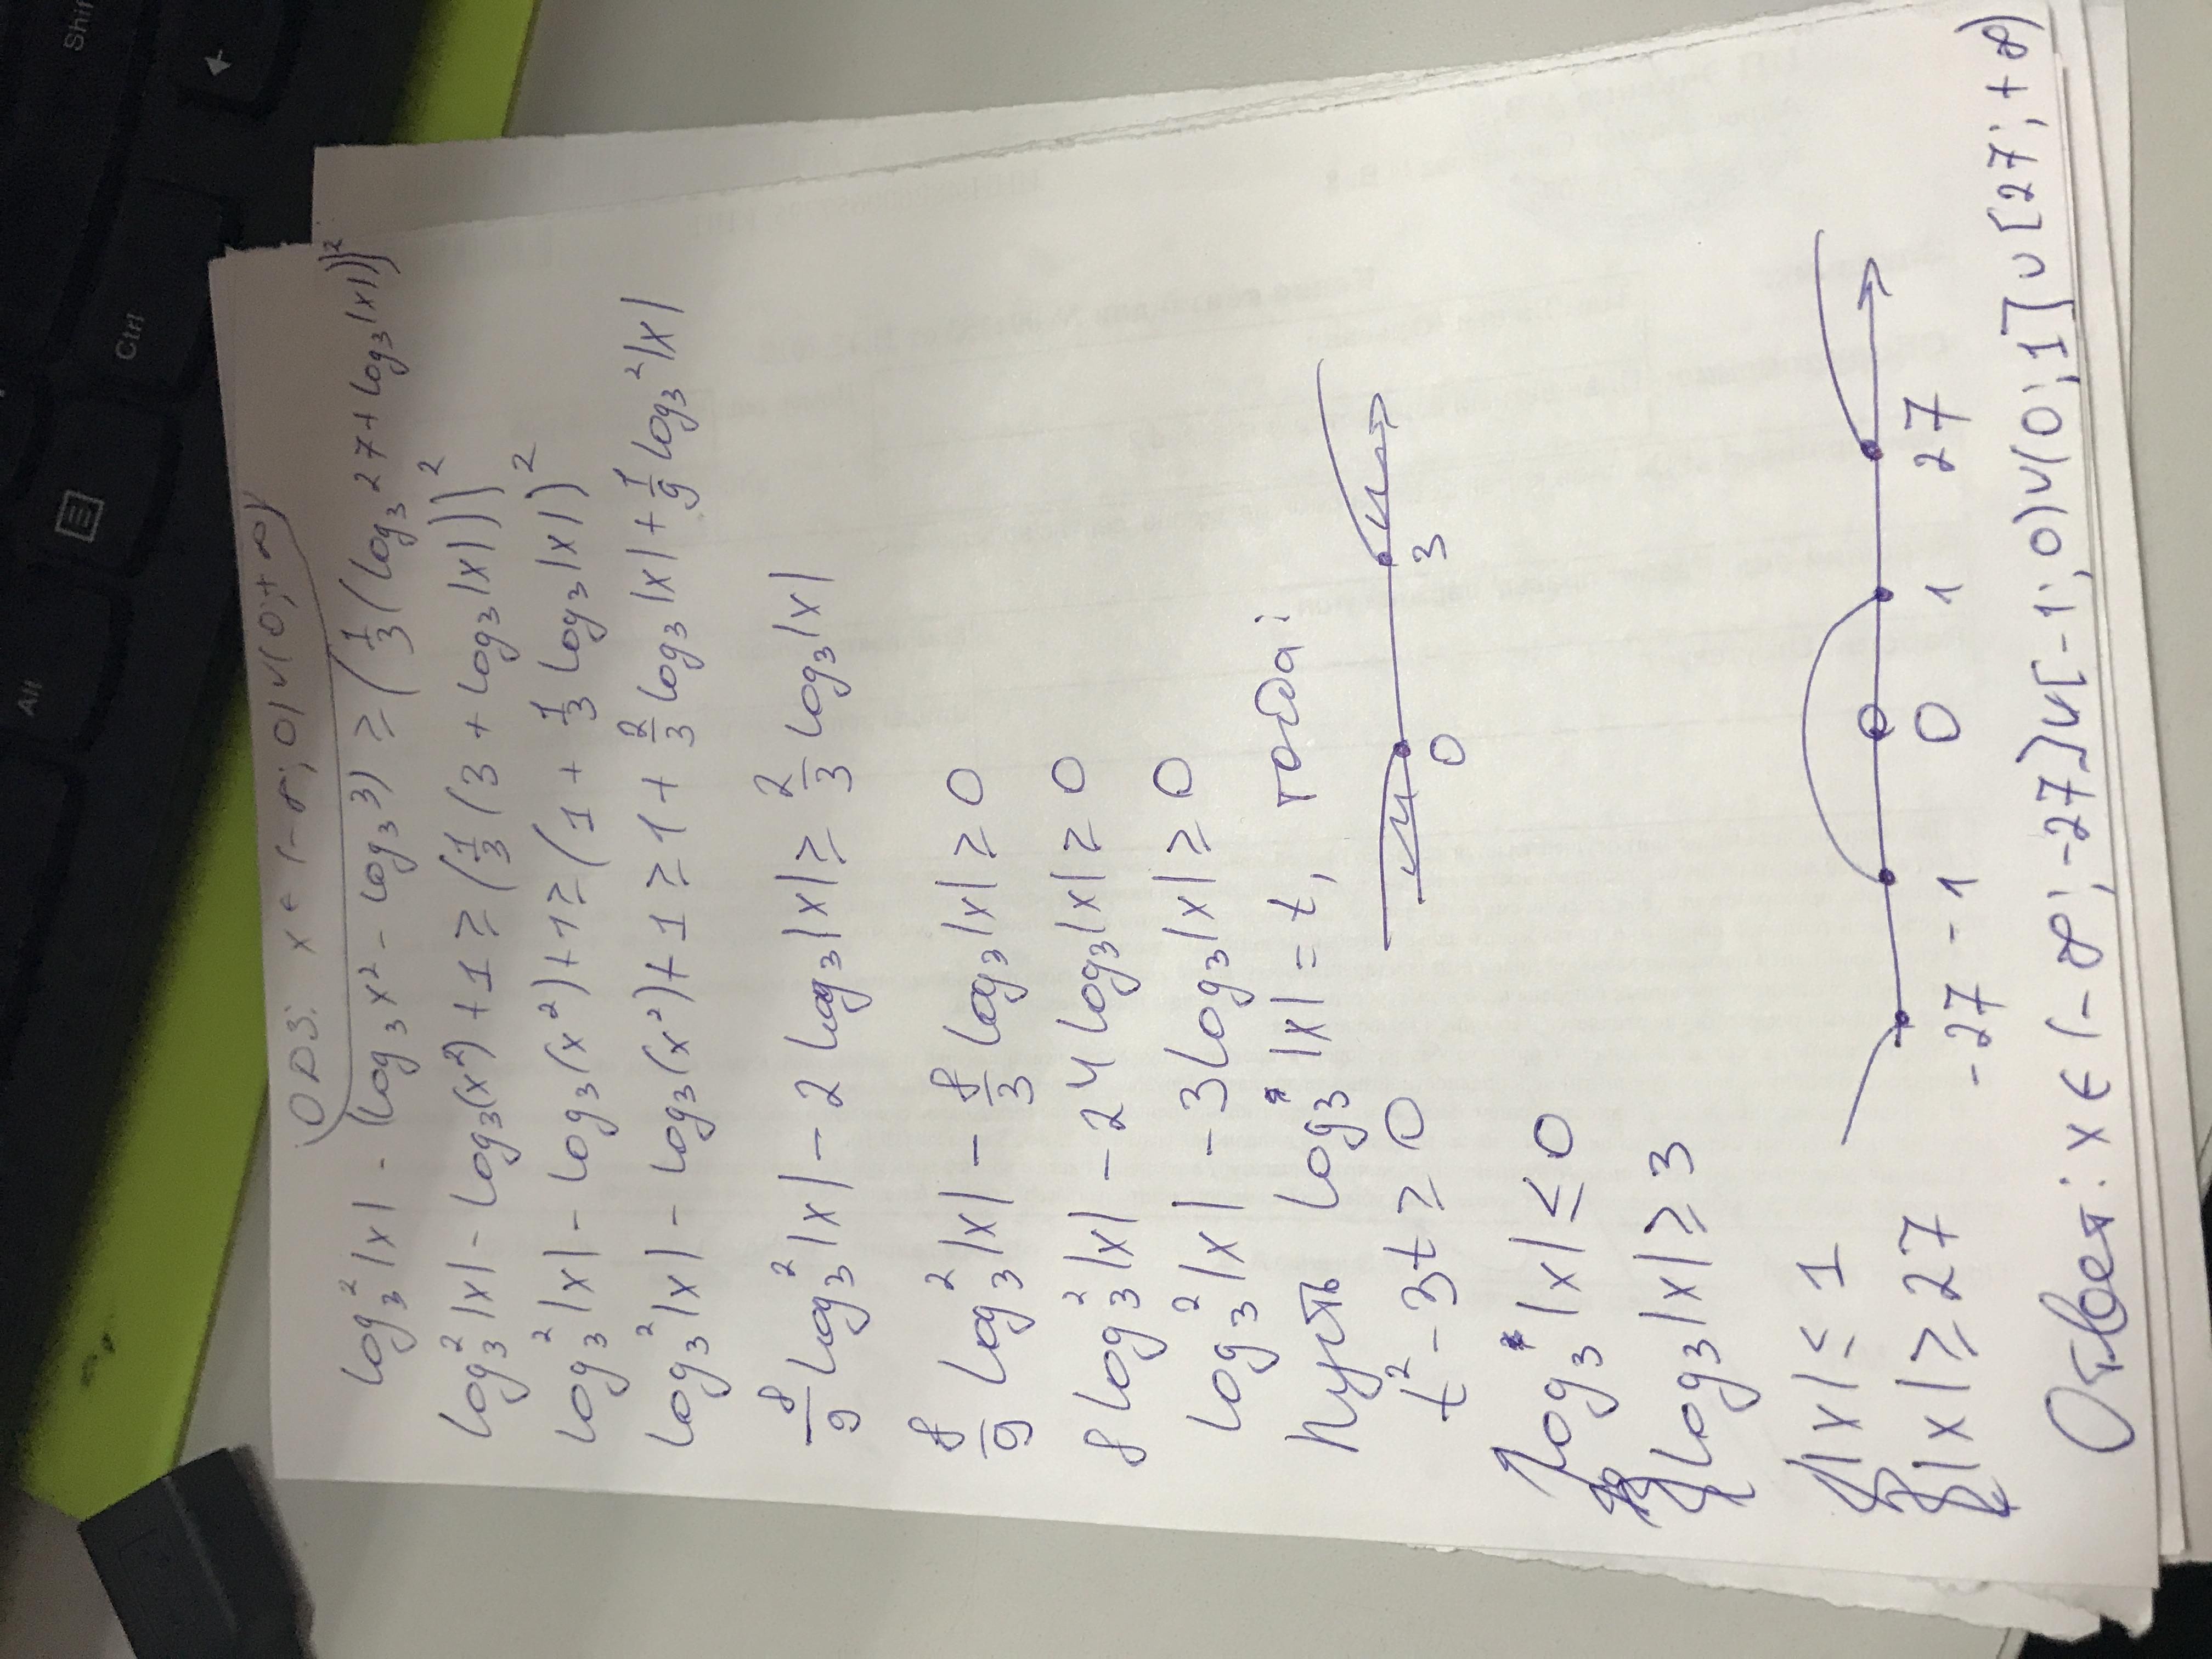 ОДЗ: x ∈ (-∞; 0) ∪ (0; +∞)
log₃²|x| - (log₃x² - log₃3) ≥ (1/3(log₃27 + log₃|x|))²
log₃²|x| - log₃(x²) + 1 ≥ (1/3(3 + log₃|x|))²
log₃²|x| - log₃(x²) + 1 ≥ (1 + 1/3 log₃|x|)²
log₃²|x| - log₃(x²) + 1 ≥ 1 + 2/3 log₃|x| + 1/9 log₃²|x|
8/9 log₃²|x| - 2 log₃|x| ≥ 2/3 log₃|x|
8/9 log₃²|x| - 8/3 log₃|x| ≥ 0
8 log₃²|x| - 24 log₃|x| ≥ 0
log₃²|x| - 3 log₃|x| ≥ 0
Пусть log₃|x| = t, тогда:
t² - 3t ≥ 0
0 3
log₃|x| ≤ 0
log₃|x| ≥ 3
|x| ≤ 1
|x| ≥ 27
-27 -1 0 1 27
Ответ: x ∈ (-∞; -27] ∪ [-1; 0) ∪ (0; 1] ∪ [27; +∞)
Shift
Ctrl
Alt